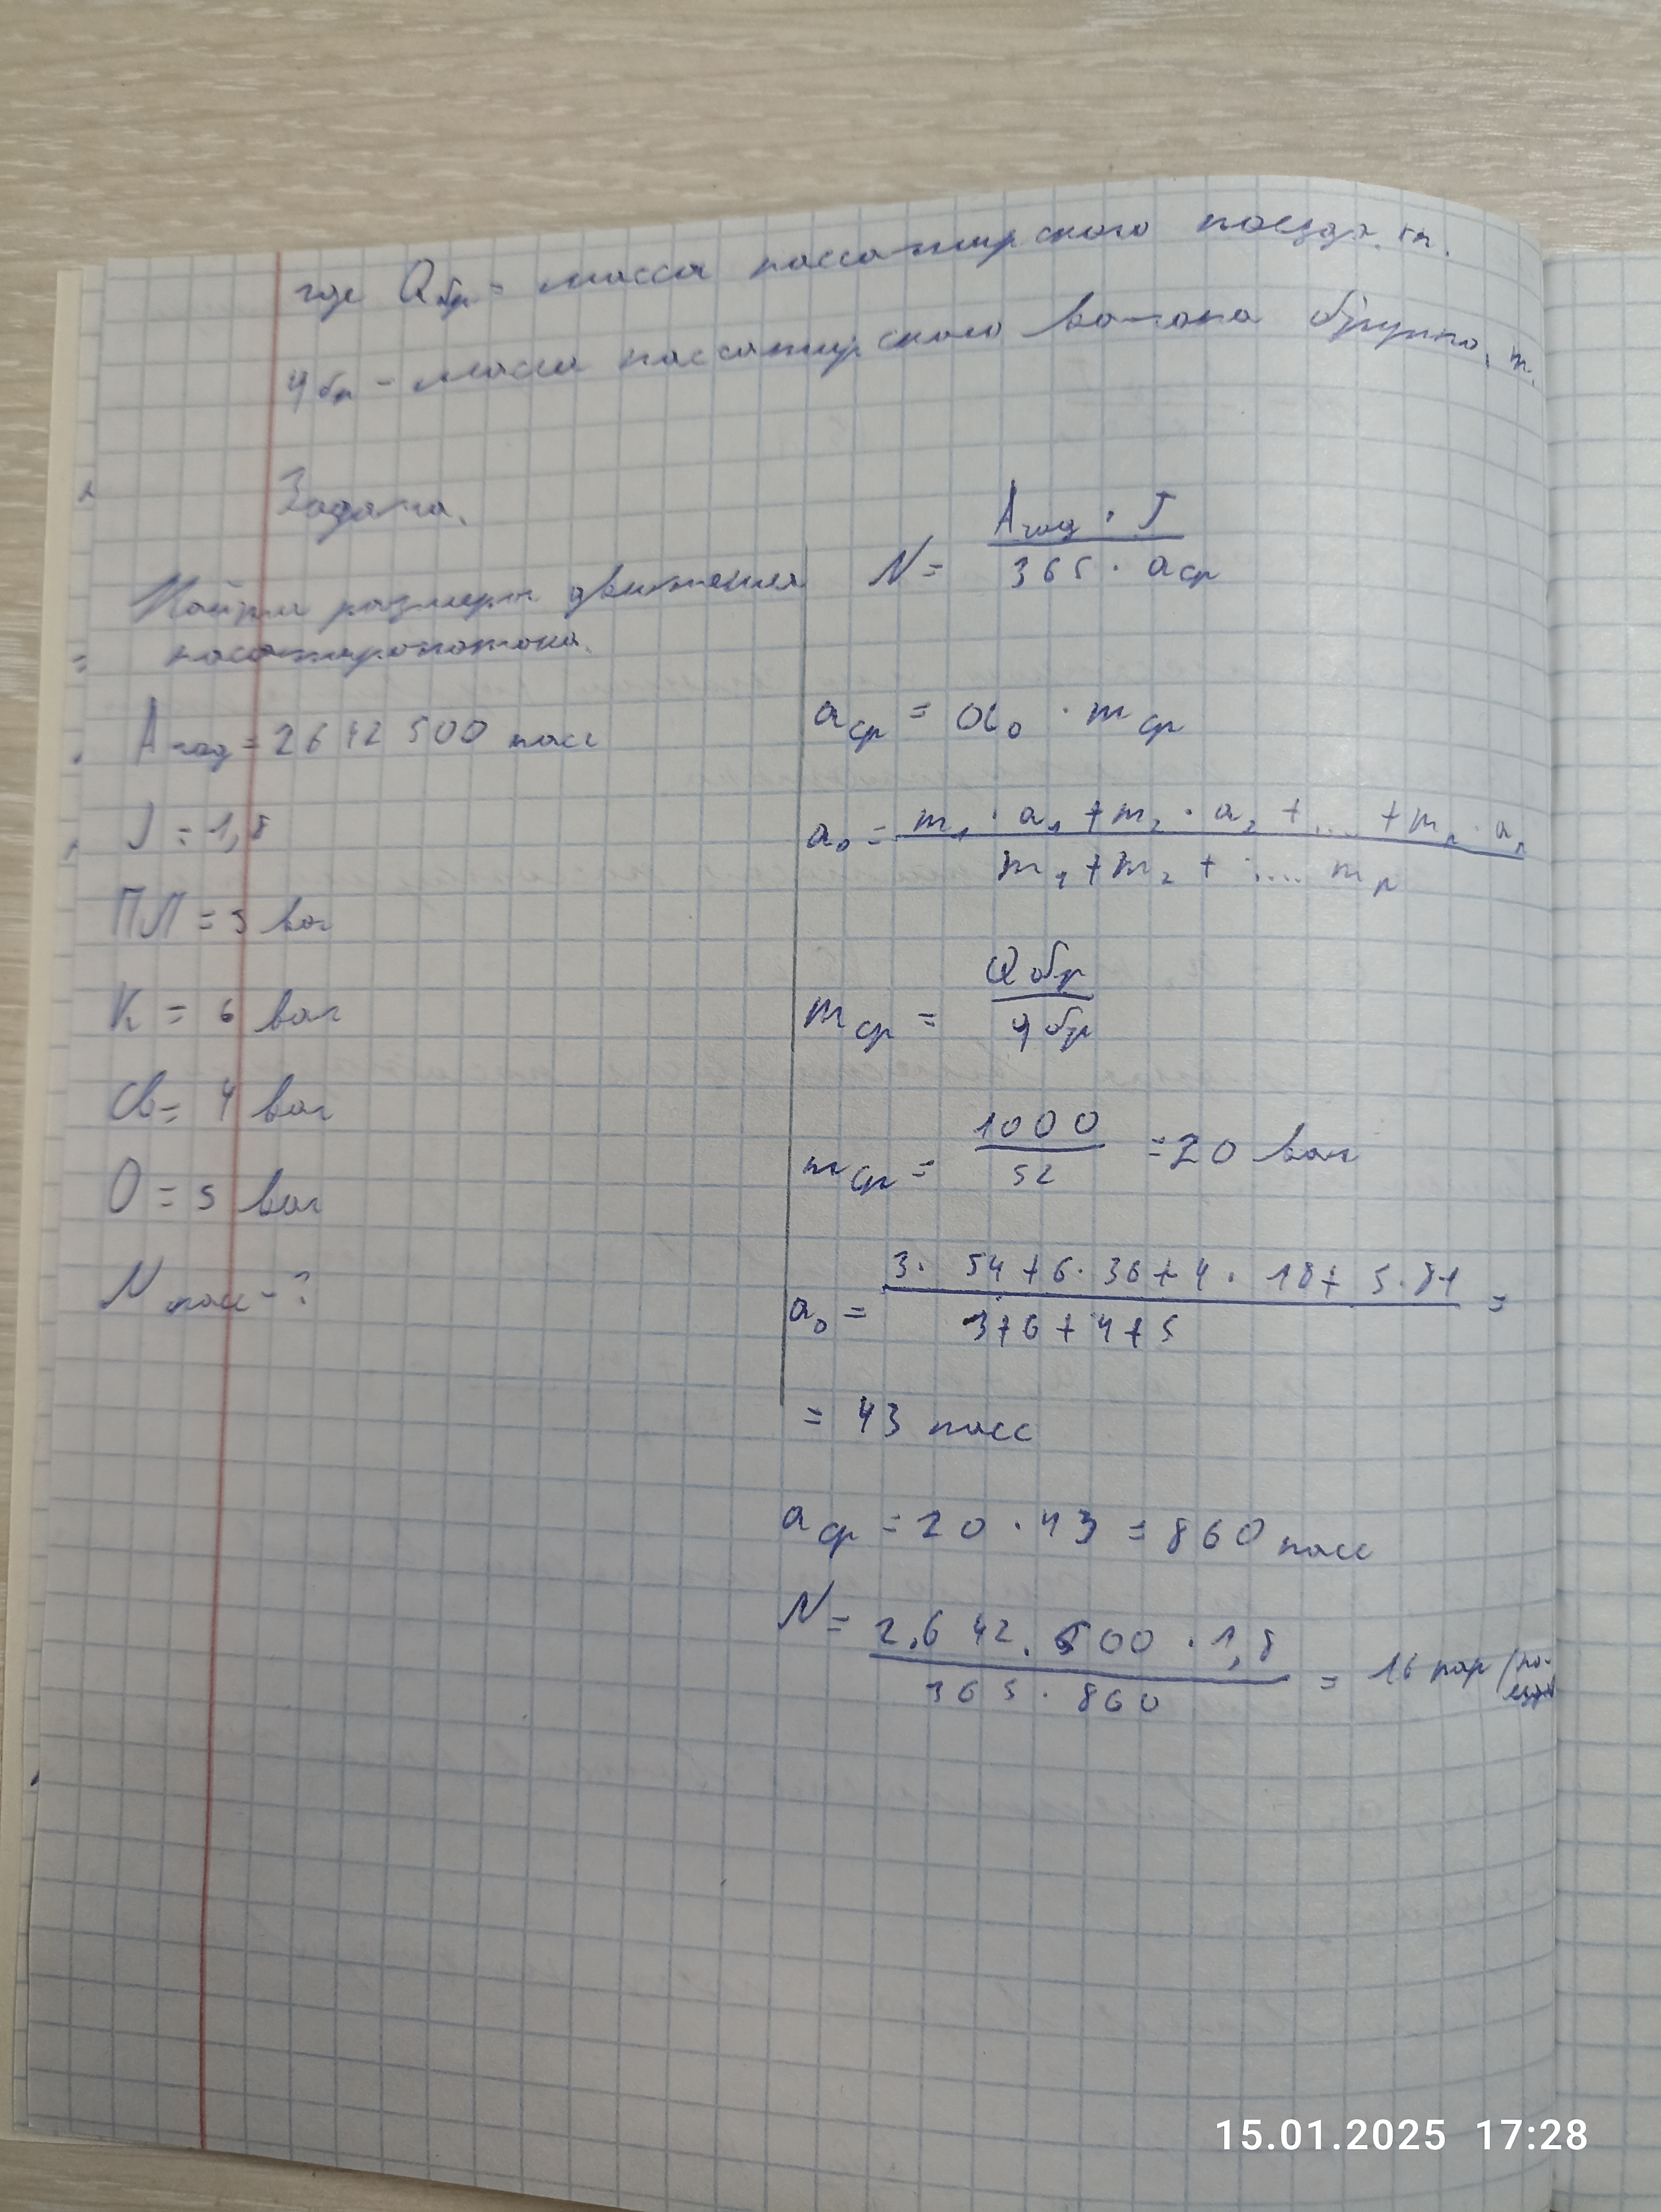 где Qбр - масса пассажирского поезда, т.
qбр - масса пассажирского вагона брутто, т.
Задача.
Найти размеры движения
пассажиропотока.
Aгод = 2642 500 пасс
J = 1,8
ПЛ = 3 ваг
К = 6 ваг
СВ = 4 ваг
О = 5 ваг
N пасс - ?
N = Aгод · J / 365 · aср
aср = a₀ · mср
a₀ = m₁ · a₁ + m₂ · a₂ + ... + mₙ · aₙ / m₁ + m₂ + .... mₙ
mср = Qбр / qбр
mср = 1000 / 52 = 20 ваг
a₀ = 3 · 54 + 6 · 36 + 4 · 18 + 5 · 81 / 3 + 6 + 4 + 5 =
= 43 пасс
aср = 20 · 43 = 860 пасс
N = 2.642.500 · 1,8 / 365 · 860 = 16 пар/поезд
15.01.2025 17:28